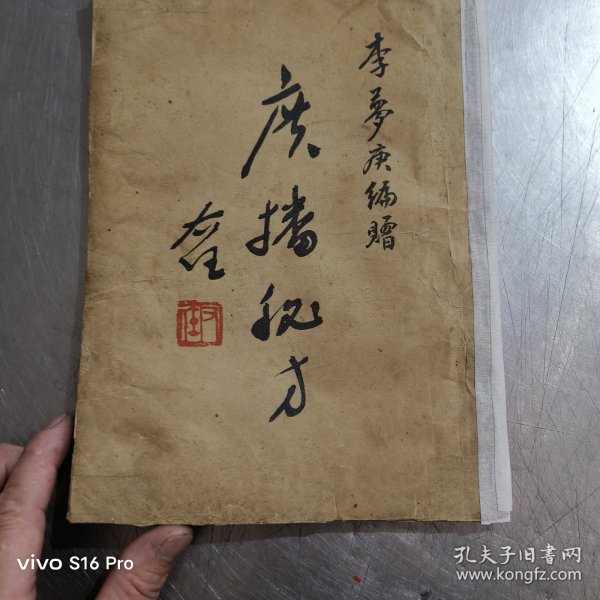 李夢庚編贈
廣播秘方
右任
vivo S16 Pro
孔夫子旧书网
www.kongfz.com